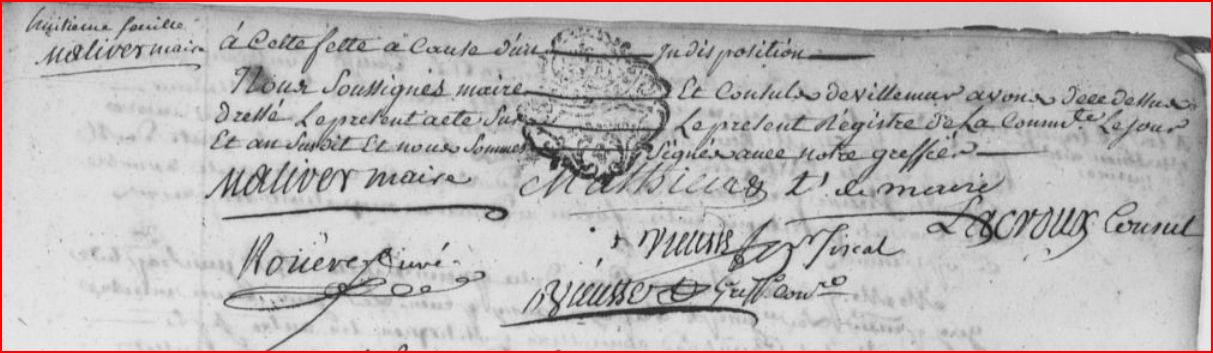 huitieme feuille
Maliver maire
à Cette fette à Cause d'un Indisposition
Nous Soussignés maire Et Consuls de villemur avons de ce dessus
dressé Le present acte Sur Le present Registre de La Commté Le jour
Et an Susdit Et nous Sommes Signés avec notre greffier
Maliver maire Mathieu Lt de maire
Lacroux Consul
Vieusse pr fiscal
Rouère Curé
Vieusse Greff. Con.re